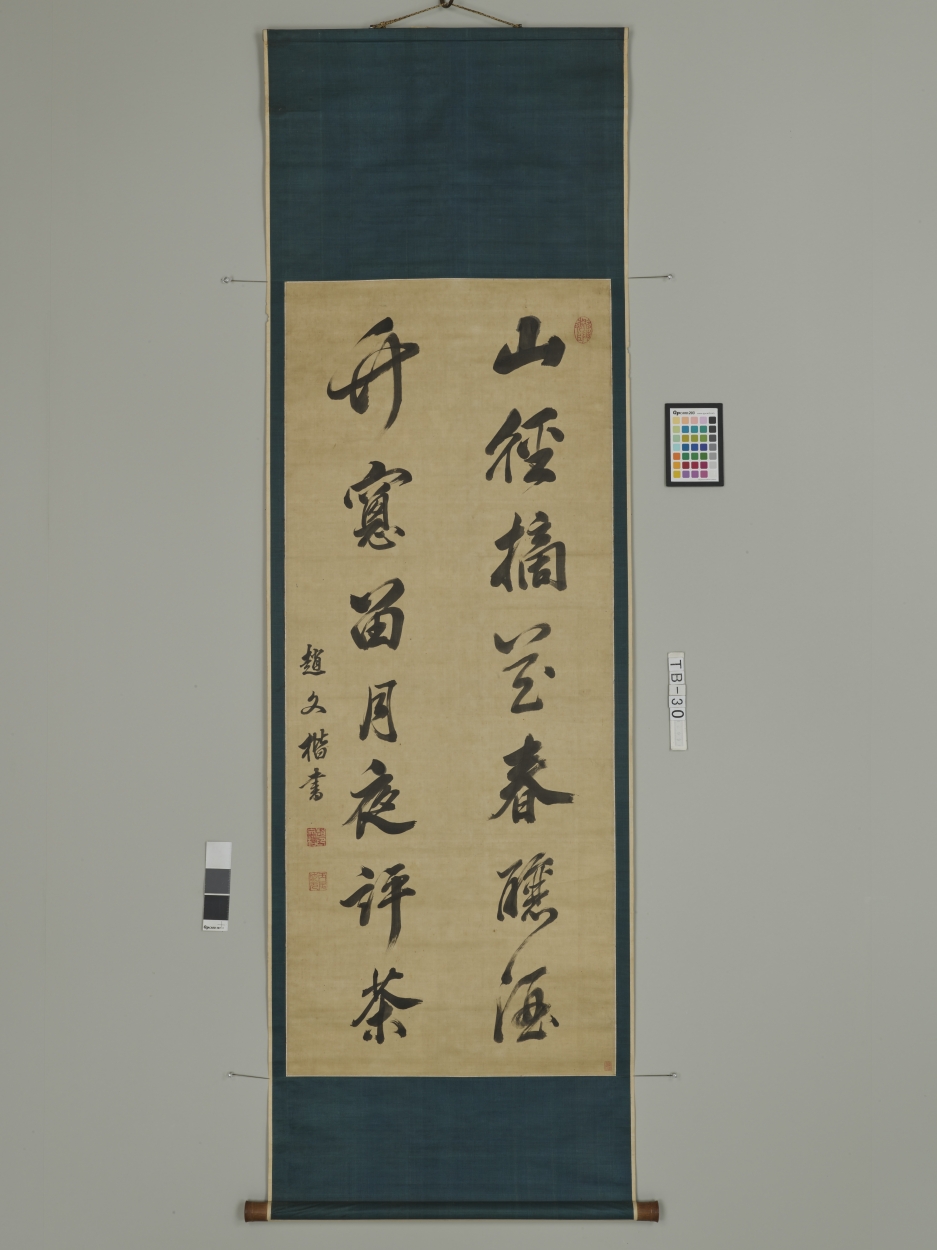 山徑摘花春釀酒
竹窻留月夜評茶
趙文楷書
TB-30